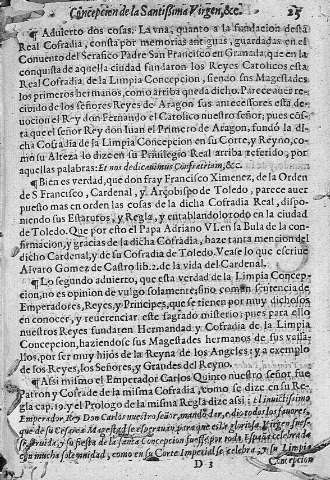 Concepcion de la Santissima Virgen, &c. 25
¶ Aduierto dos cosas. La vna, quanto a la fundacion desta
Real Cofradia, consta por memorias antiguas, guardadas en el
Conuento del Serafico Padre San Francisco en Granada, que en la
conquista de aquella ciudad fundaron los Reyes Catolicos esta
Real Cofradia de la Limpia Concepcion, siendo sus Magestades
los primeros hermanos, como arriba queda dicho. Parece auer te-
nido de los señores Reyes de Aragon sus antecessores esta de-
uocion el Rey don Fernando el Catolico nuestro señor, pues cõs-
ta que el señor Rey don Iuan el Primero de Aragon, fundó la di-
cha Cofradia de la Limpia Concepcion en su Corte, y Reyno, co-
mo su Alteza lo dize en su Priuilegio Real arriba referido, por
aquellas palabras: Et nos dedicauimus Confratriam, &c.
¶ Bien es verdad, que don fray Francisco Ximenez, de la Orden
de S. Francisco, Cardenal, y Arçobispo de Toledo, parece auer
puesto mas en orden las cosas de la dicha Cofradia Real, dispo-
niendo sus Estatutos, y Regla, y entablandolo todo en la ciudad
de Toledo. Que por esto el Papa Adriano VI. en la Bula de la con-
firmacion, y gracias de la dicha Cofradia, haze tanta mencion del
dicho Cardenal, y de su Cofradia de Toledo. Vease lo que escriue
Aluaro Gomez de Castro lib. 2. de la vida del Cardenal.
¶ Lo segundo aduierto, que esta verdad de la Limpia Concep-
cion, no es opinion de vulgo solamente, sino comun sentencia de
Emperadores, Reyes, y Principes, que se tienen por muy dichosos
en conocer, y reuerenciar este sagrado misterio: pues para ello
nuestros Reyes fundaron Hermandad y Cofradia de la Limpia
Concepcion, haziendose sus Magestades hermanos de sus vassa-
llos, por ser muy hijos de la Reyna de los Angeles: y a exemplo
de los Reyes, los Señores, y Grandes del Reyno.
¶ Assi mismo el Emperador Carlos Quinto nuestro señor fue
Patron y Cofrade de la misma Cofradia, como se dize en su Re-
gla cap. 19. y el Prologo de la misma Regla dize assi: El inuictissimo
Emperador, Rey Don Carlos nuestro señor, mandó dar, e dio todos los fauores,
que de su Cesarea Magestad se esperauan, para que esta gloriosa Virgen fuesse
seruida, y su fiesta de la santa Concepcion fuesse por toda España celebrada
con mucha solemnidad, como en su Corte Imperial se celebra, y su Limpia
D 1 Concepcion